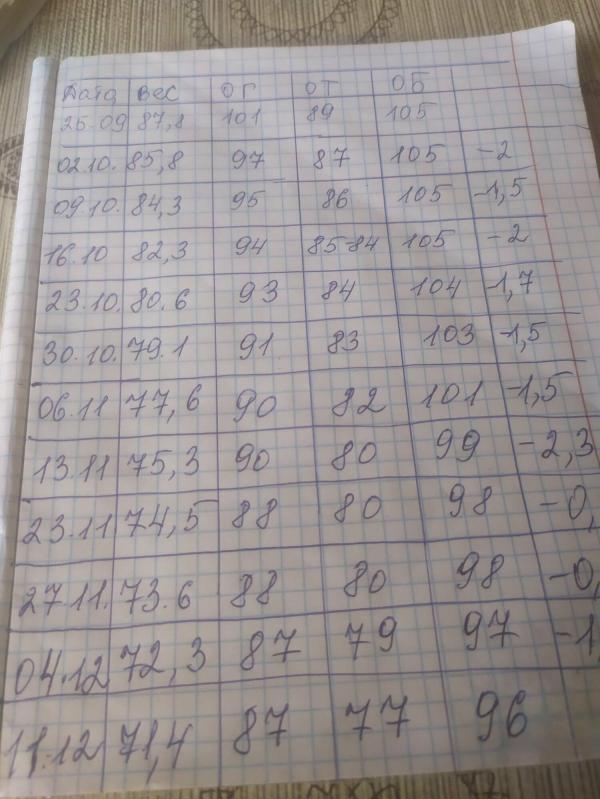 Дата вес ОГ ОТ ОБ
25.09 87,8 101 89 105
02.10. 85,8 97 87 105 -2
09.10. 84,3 95 86 105 -1,5
16.10 82,3 94 85-84 105 -2
23.10. 80.6 93 84 104 -1,7
30.10. 79.1 91 83 103 -1,5
06.11 77,6 90 82 101 -1,5
13.11 75,3 90 80 99 -2,3
23.11 74,5 88 80 98 -0,
27.11. 73.6 88 80 98 -0,
04.12 72,3 87 79 97 -1,
11.12 71,4 87 77 96